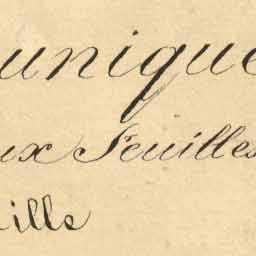 unique
ux Feuilles
ille